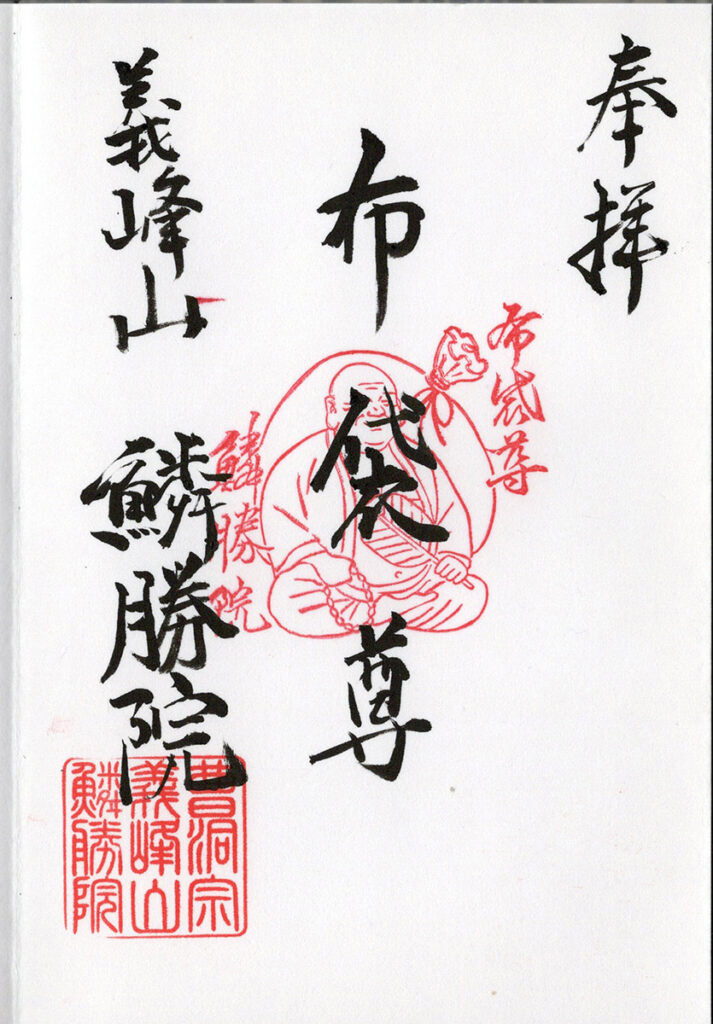 奉拝
布袋尊
布袋尊
鱗勝院
義峰山 鱗勝院
曹洞宗
義峰山
鱗勝院